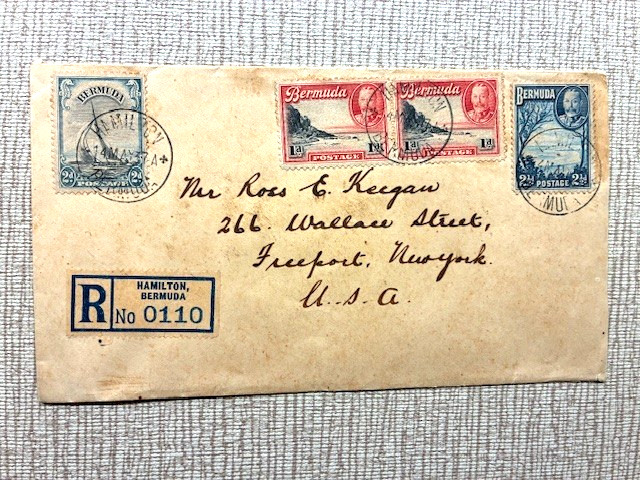 BERMUDA
2d POSTAGE 2d
HAMILTON
BERMUDA
Bermuda
1d 1d
POSTAGE
Bermuda
1d 1d
POSTAGE
BERMUDA
POSTAGE
2½ 2½
Mr Ross E. Keegan
266. Wallace Street,
Freeport, Newyork.
U.S.A.
R
HAMILTON,
BERMUDA
No 0110